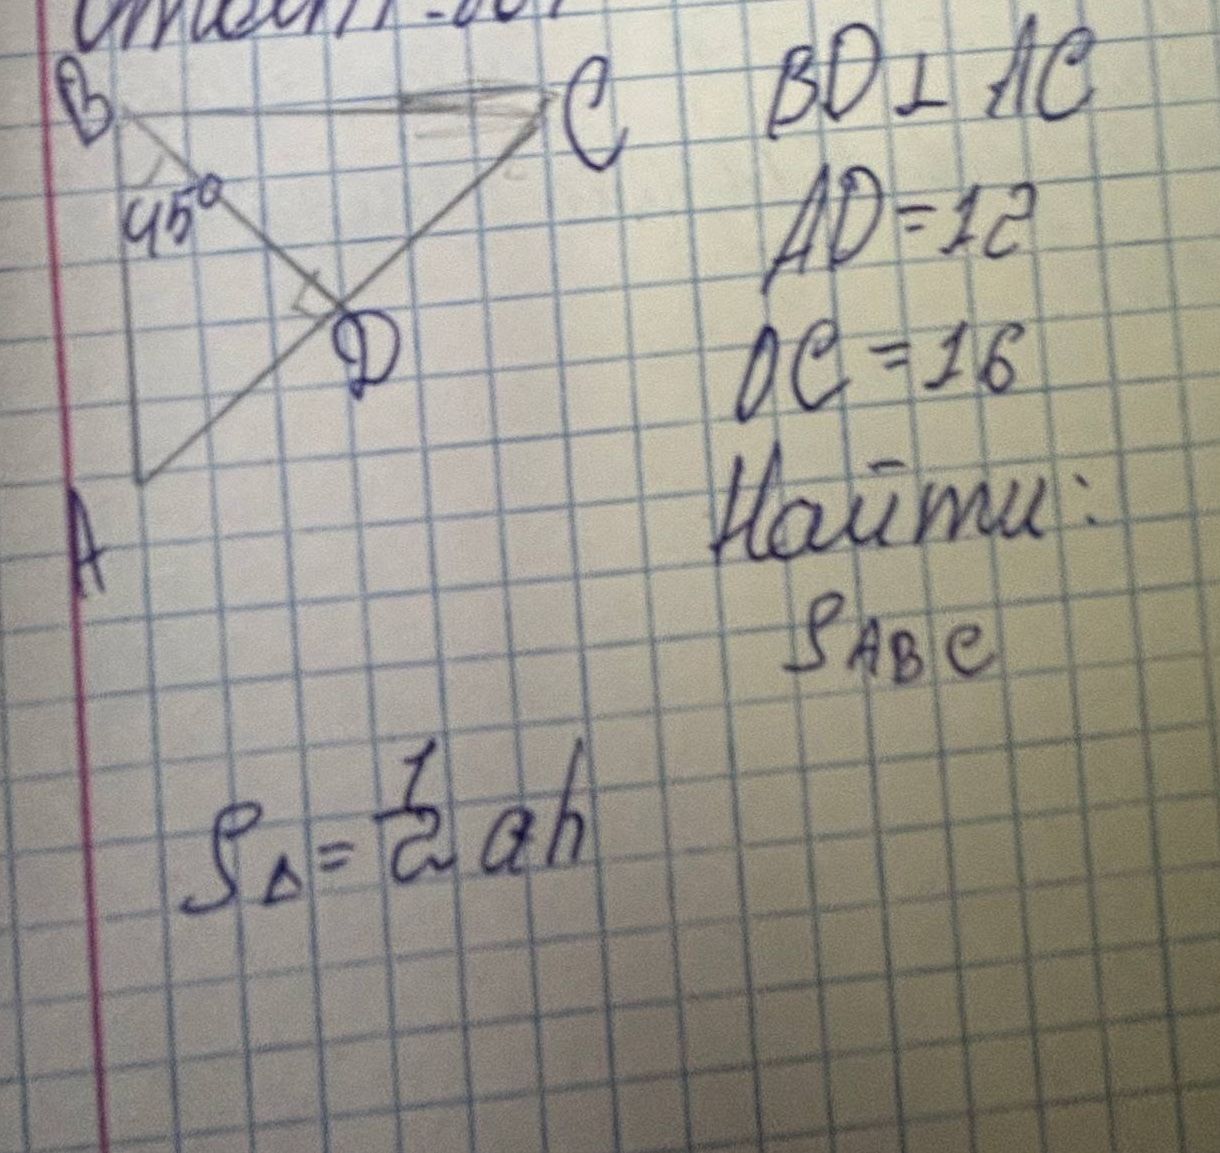 B
C
45°
D
A
BD ⊥ AC
AD = 12
DC = 16
Найти:
S ABC
S△ = 1/2 ah